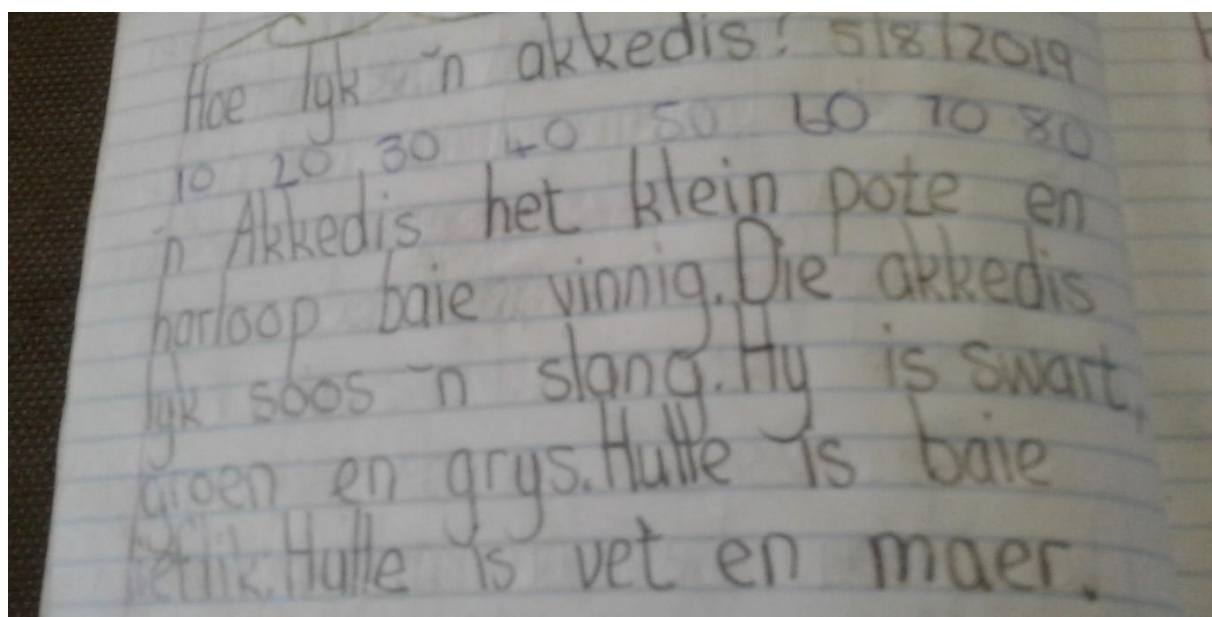 Hoe lyk 'n akkedis! 5/8/2019
10 20 30 40 50 60 70 80
'n Akkedis het klein pote en
horloop baie vinnig. Die akkedis
lyk soos 'n slang. Hy is swart,
groen en grys. Hulle is baie
lietlik. Hulle is vet en maer.